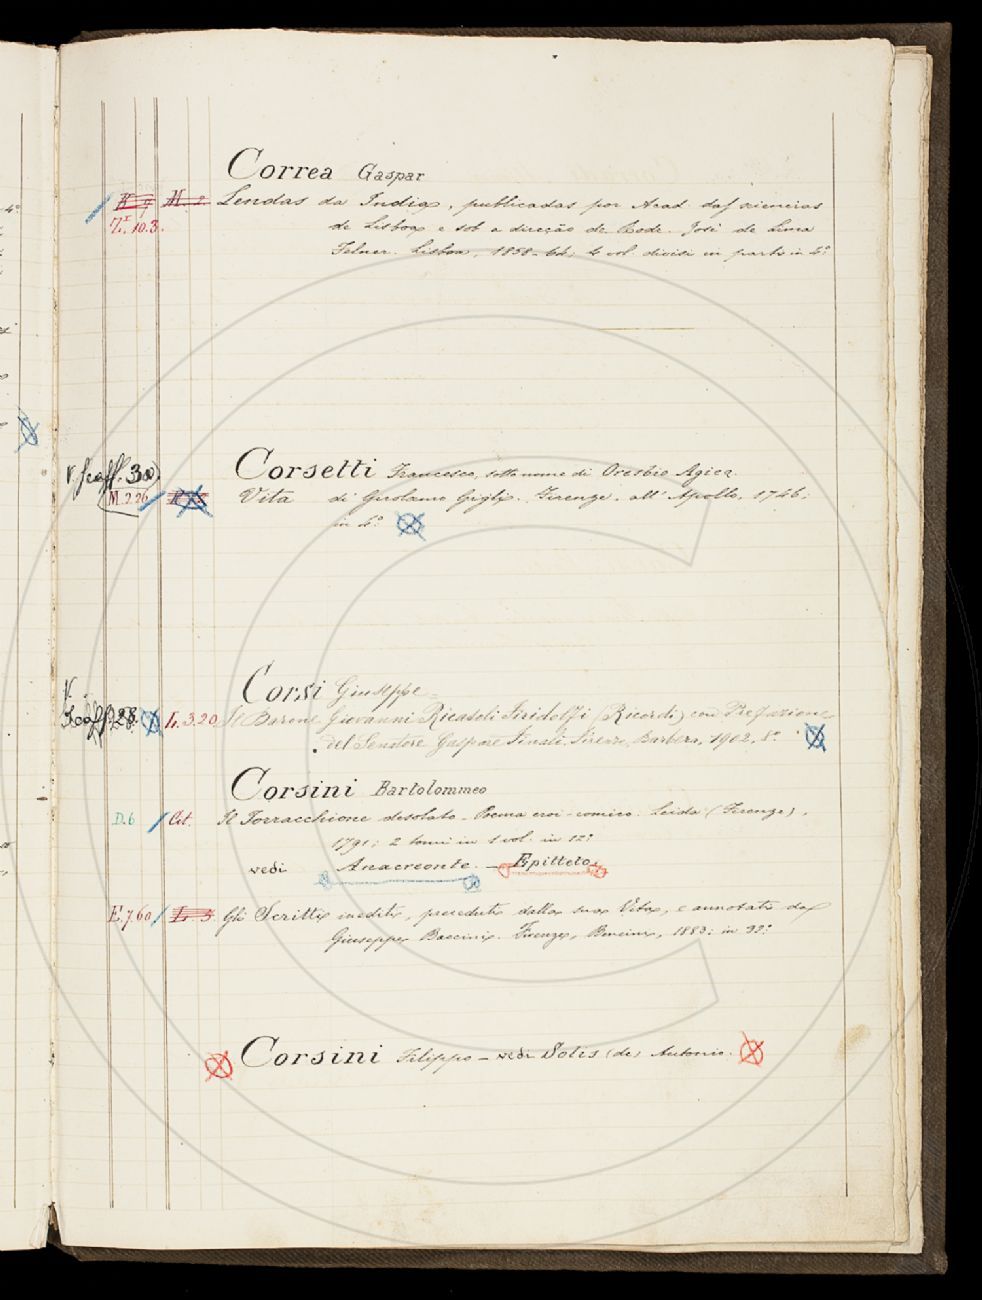 Correa Gaspar
M. 2. Lendas da India, publicadas por Acad. das sciencias
Z.I 10.3. de Lisboa e sob a direção de Rodr. José de Lima
Felner. Lisboa, 1858-64; 4 vol. divisi in parti in 4°
V. scaff. 30 Corsetti Francesco, sotto nome di Oresbio Agieo.
M. 2.26 Vita di Girolamo Gigli. Firenze, all' Apollo, 1746;
in 4°
V. Corsi Giuseppe
Scaff 28. L. 3.20 Il Barone Giovanni Ricasoli Firidolfi (Ricordi) con Prefazione
del Senatore Gaspare Finali, Firenze, Barbera, 1902, 8°
Corsini Bartolommeo
D.6 Let. Il Torracchione desolato. Poema eroi-comico. Leida (Firenze),
1791; 2 tomi in 1 vol. in 12°
vedi Anacreonte. — Epitteto.
E.7.60 L. 3 Gli Scritti inediti, preceduti dalla sua Vita, e annotati da
Giuseppe Baccini. Firenze, 1883; in 32°
Corsini Filippo — vedi Solis (de) Antonio.